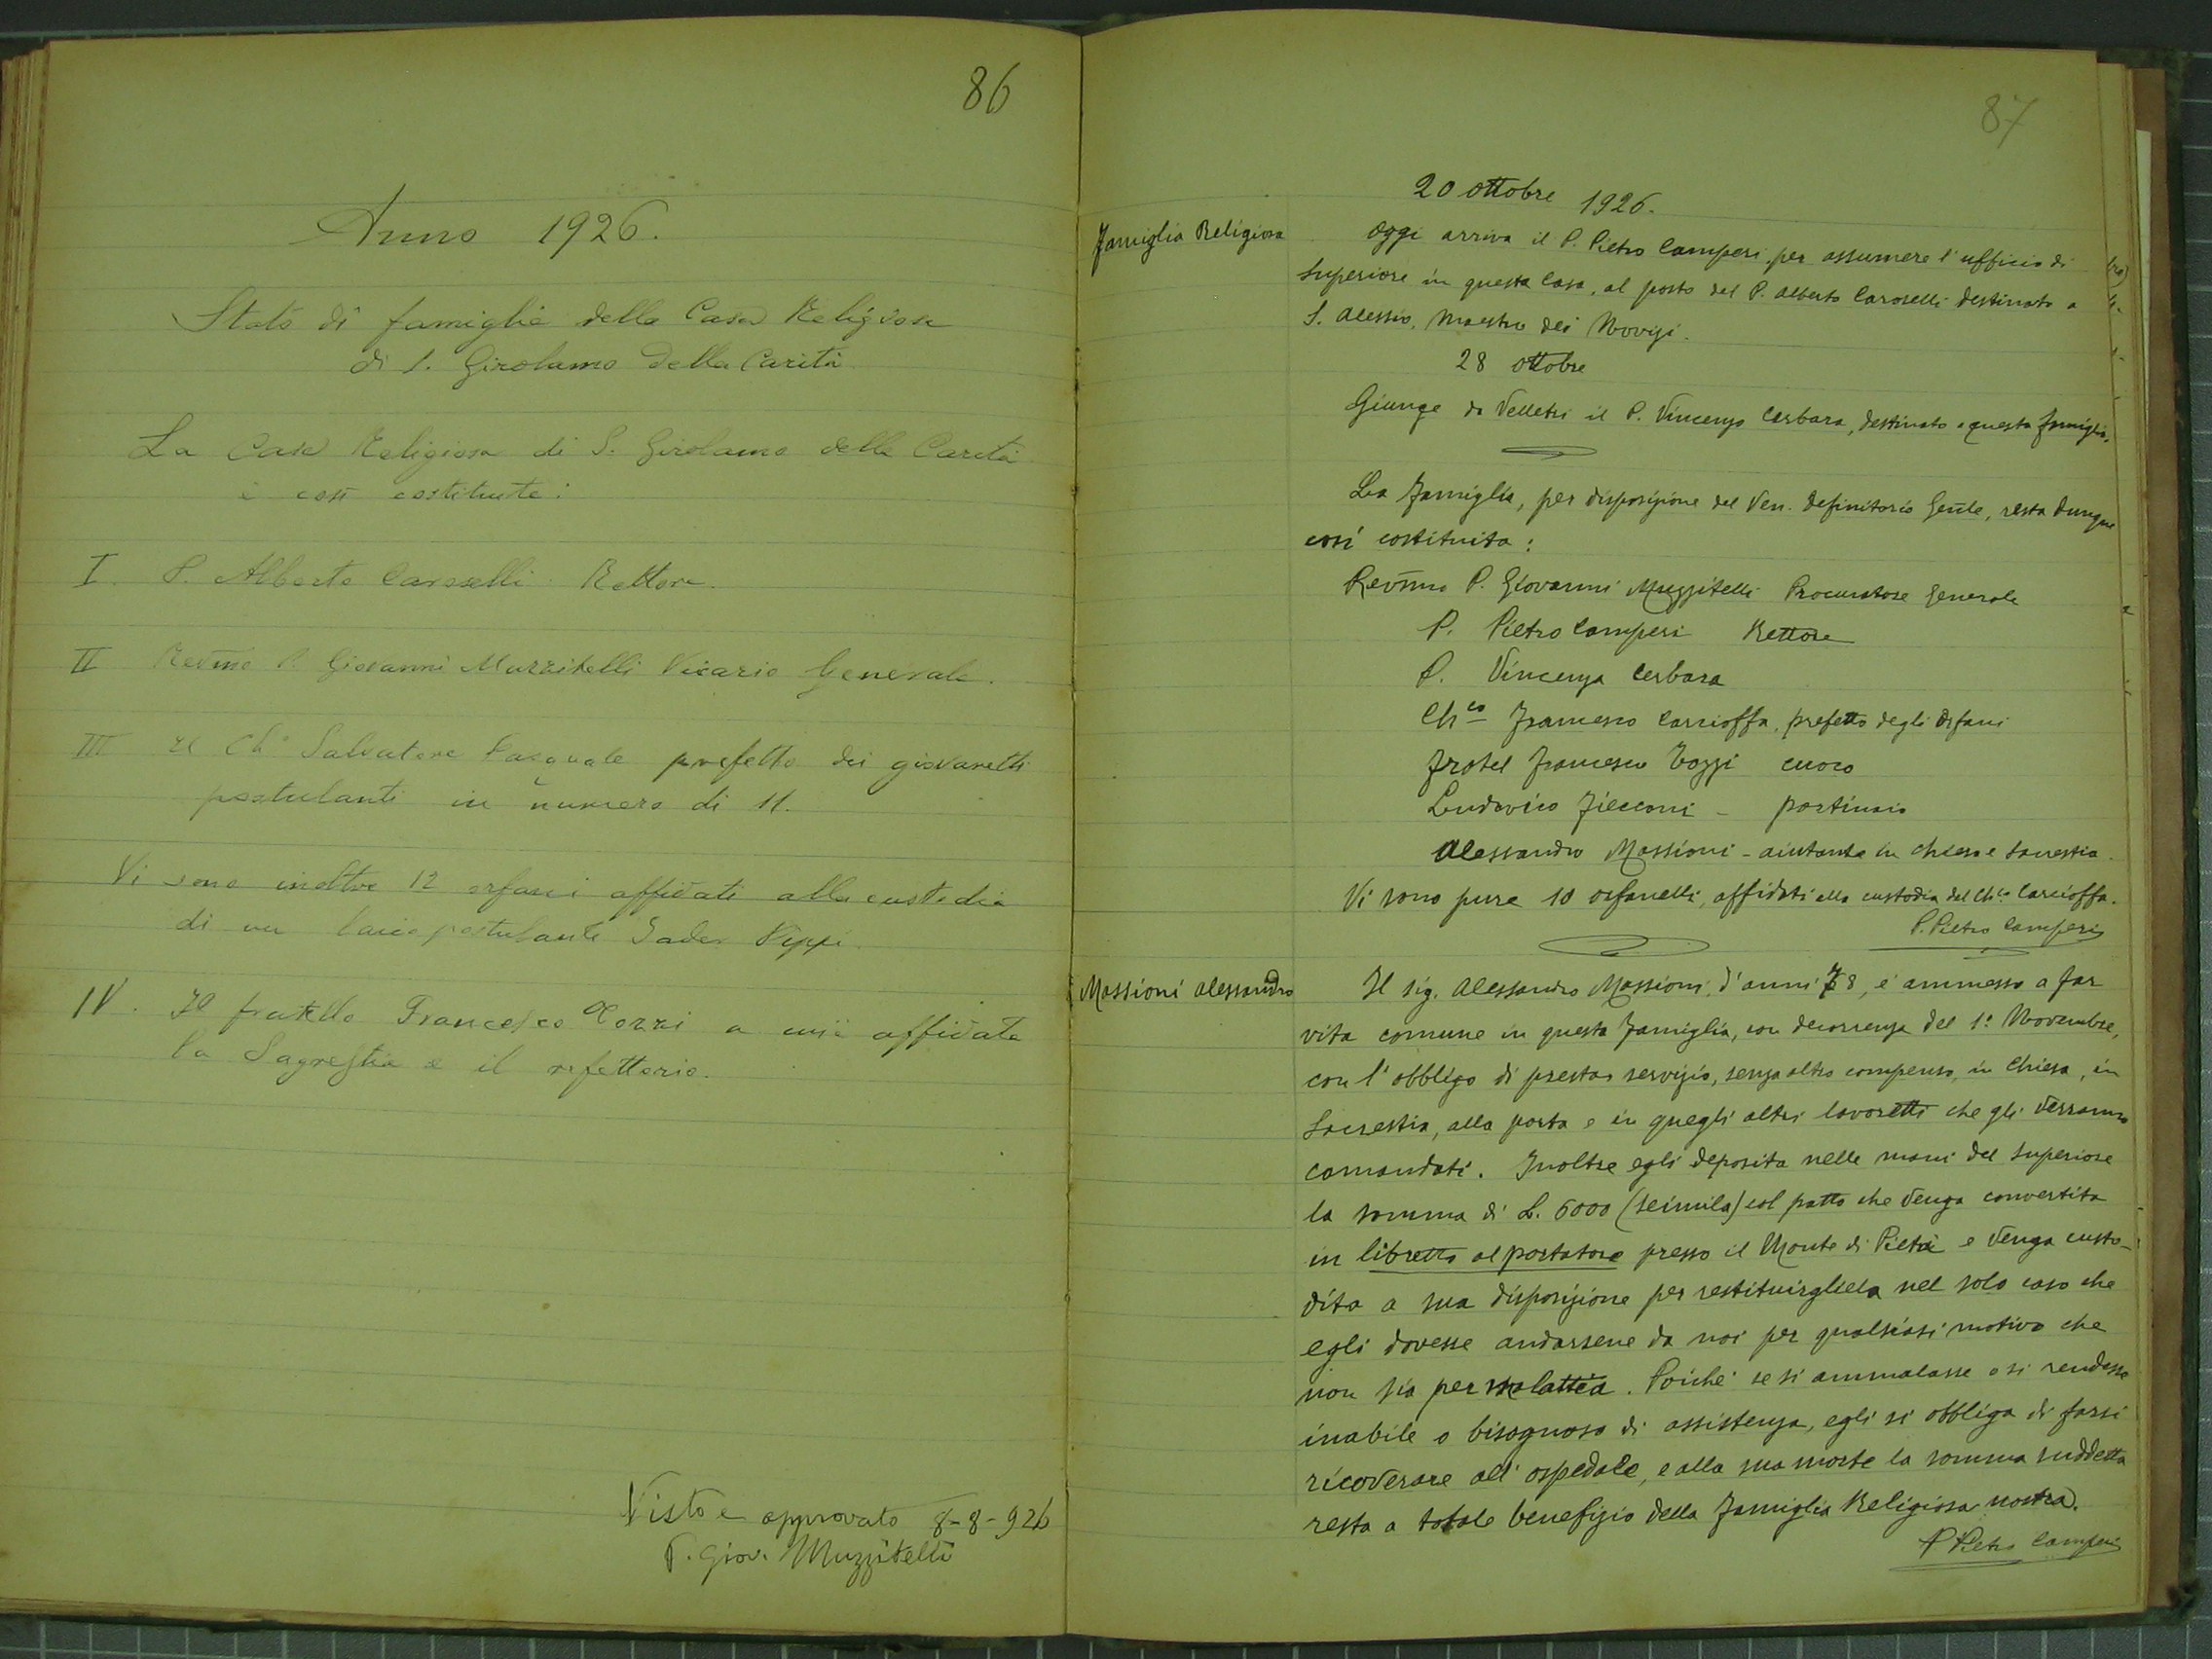 86
Anno 1926.
Stato di famiglia della Casa Religiosa
di S. Girolamo della Carità
La Casa Religiosa di S. Girolamo della Carità
è così costituita:
I. P. Alberto Caroselli: Rettore.
II Revmo P. Giovanni Muzzitelli Vicario Generale.
III Il Ch° Salvatore Pasquale prefetto dei giovanetti
postulanti in numero di 11.
Vi sono inoltre 12 orfani affidati alla custodia
di un laico postulante
IV. Il fratello Francesco Tozzi a cui è affidata
la Sagrestia e il refettorio.
Visto e approvato 8-8-926
P. Giov. Muzzitelli
87
20 ottobre 1926.
Famiglia Religiosa
Oggi arriva il P. Pietro Camperi, per assumere l'ufficio di
Superiore in questa Casa, al posto del P. Alberto Caroselli destinato a
S. Alessio, Maestro dei Novizi.
28 ottobre
Giunge da Velletri il P. Vincenzo Cerbara, destinato a questa famiglia.
La Famiglia, per disposizione del Ven. Definitorio Genle, resta dunque
così costituita:
Revmo P. Giovanni Muzzitelli Procuratore Generale
P. Pietro Camperi Rettore
P. Vincenzo Cerbara
Chco Francesco Carcioffa, prefetto degli orfani
Fratel Francesco Tozzi cuoco
Ludovico Ficconi - portinaio
Alessandro Massioni - aiutante in chiesa e sacrestia.
Vi sono pure 10 orfanelli, affidati alla custodia del Chco Carcioffa.
P. Pietro Camperi
Massioni Alessandro
Il sig. Alessandro Massioni, d'anni 78, è ammesso a far
vita comune in questa famiglia, con decorrenza del 1° Novembre,
con l'obbligo di prestar servizio, senza altro compenso, in Chiesa, in
Sacrestia, alla porta e in quegli altri lavoretti che gli verranno
comandati. Inoltre egli deposita nelle mani del Superiore
la somma di L. 6000 (seimila) col patto che venga convertita
in libretto al portatore presso il Monte di Pietà e venga custo-
dita a sua disposizione per restituirgliela nel solo caso che
egli dovesse andarsene da noi per qualsiasi motivo che
non sia per malattia. Poichè se si ammalasse o si rendesse
inabile o bisognoso di assistenza, egli si obbliga di farsi
ricoverare all'ospedale, e alla sua morte la somma suddetta
resta a totale benefizio della Famiglia Religiosa nostra.
P. Pietro Camperi